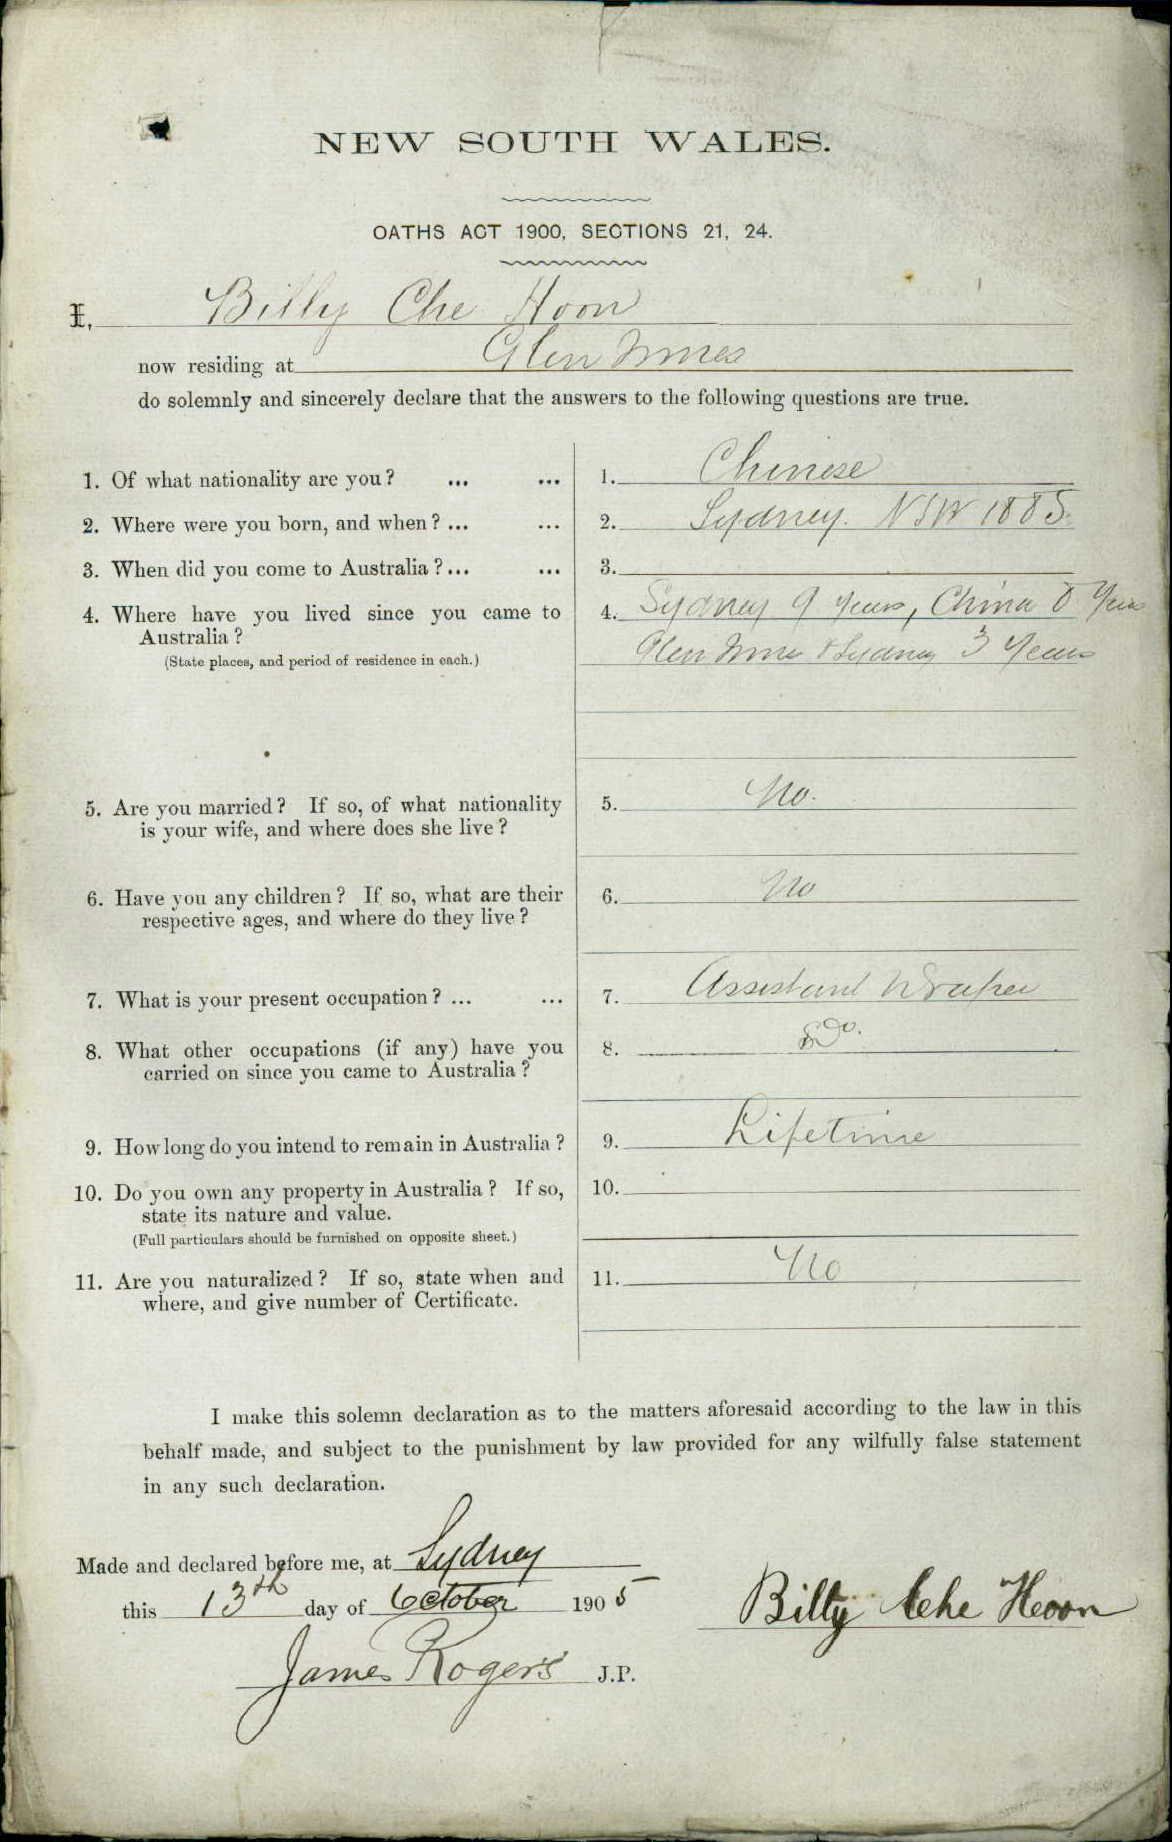 NEW SOUTH WALES.
OATHS ACT 1900, SECTIONS 21, 24.
I, Billy Che Hoon
now residing at Glen Innes
do solemnly and sincerely declare that the answers to the following questions are true.
1. Of what nationality are you? ... ... 1. Chinese
2. Where were you born, and when? ... ... 2. Sydney. NSW 1885.
3. When did you come to Australia? ... ... 3.
4. Where have you lived since you came to 4. Sydney 9 Years, China 8 Years
Australia? Glen Innes & Sydney 3 Years
(State places, and period of residence in each.)
5. Are you married? If so, of what nationality 5. No.
is your wife, and where does she live?
6. Have you any children? If so, what are their 6. No
respective ages, and where do they live?
7. What is your present occupation? ... ... 7. Assistant Draper
8. What other occupations (if any) have you 8. Do.
carried on since you came to Australia?
9. How long do you intend to remain in Australia? 9. Lifetime
10. Do you own any property in Australia? If so, 10.
state its nature and value.
(Full particulars should be furnished on opposite sheet.)
11. Are you naturalized? If so, state when and 11. No
where, and give number of Certificate.
I make this solemn declaration as to the matters aforesaid according to the law in this
behalf made, and subject to the punishment by law provided for any wilfully false statement
in any such declaration.
Made and declared before me, at Sydney
this 13th day of October 1905
Billy Che Hoon
James Rogers J.P.